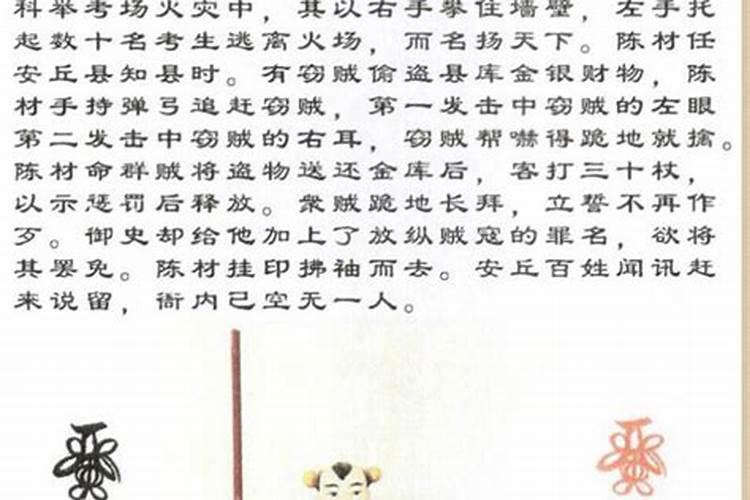 科举考场火灾中，其以右手攀住墙壁，左手托
起数十名考生逃离火场，而名扬天下。陈材任
安丘县知县时。有窃贼偷盗县库金银财物，陈
材手持弹弓追赶窃贼，第一发击中窃贼的左眼
第二发击中窃贼的右耳，窃贼帮嚇得跪地就擒。
陈材命群贼将盗物送还金库后，客打三十杖，
以示惩罚后释放。衆贼跪地长拜，立誓不再作
歹。御史却给他加上了放纵贼寇的罪名，欲将
其罢免。陈材挂印拂袖而去。安丘百姓闻讯赶
来说留，衙内已空无一人。